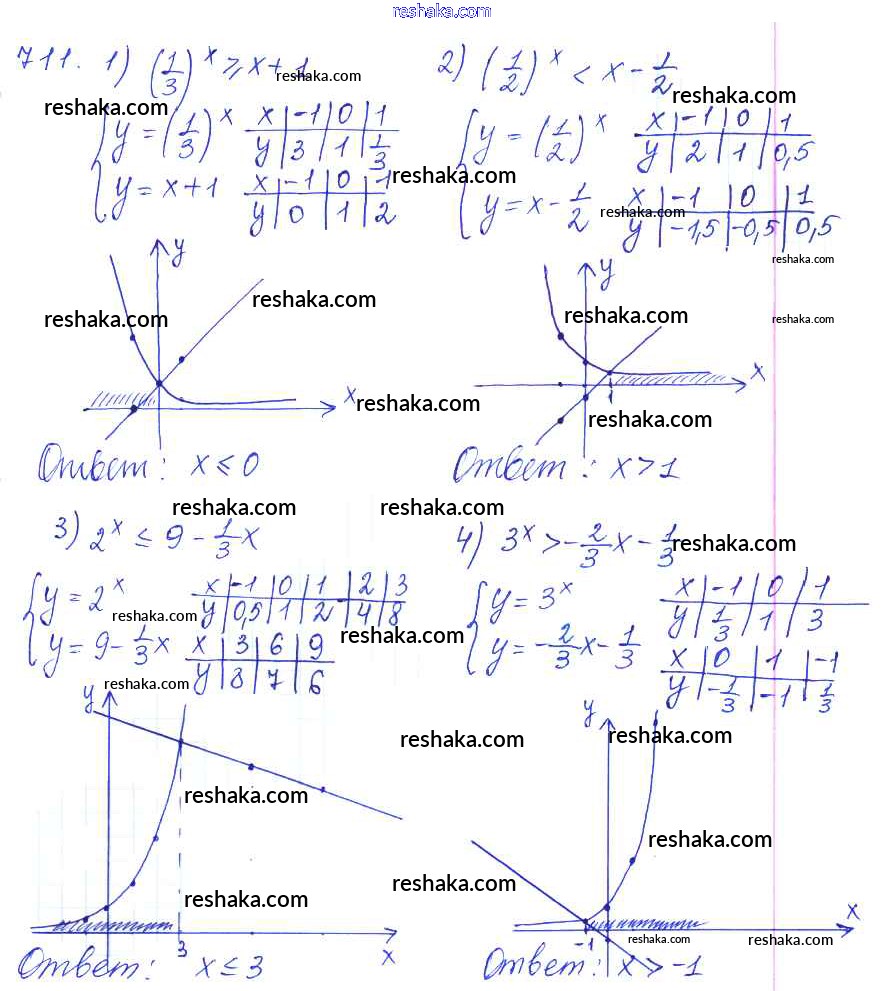 reshaka.com
711. 1) (1/3)^x ≥ x + 1
reshaka.com
reshaka.com
{ y = (1/3)^x
x | -1 | 0 | 1
y | 3 | 1 | 1/3
y = x + 1
x | -1 | 0 | -1
y | 0 | 1 | 2
2) (1/2)^x < x - 1/2
reshaka.com
{ y = (1/2)^x
x | -1 | 0 | 1
y | 2 | 1 | 0,5
reshaka.com
y = x - 1/2
reshaka.com
x | -1 | 0 | 1
y | -1,5 | -0,5 | 0,5
reshaka.com
y
reshaka.com
reshaka.com
x
reshaka.com
y
reshaka.com
reshaka.com
x
1
reshaka.com
Ответ: x ≤ 0
Ответ: x > 1
reshaka.com
reshaka.com
3) 2^x ≤ 9 - 1/3 x
{ y = 2^x
reshaka.com
x | -1 | 0 | 1 | 2 | 3
y | 0,5 | 1 | 2 | 4 | 8
y = 9 - 1/3 x
x | 3 | 6 | 9
y | 8 | 7 | 6
reshaka.com
reshaka.com
4) 3^x > -2/3 x - 1/3
reshaka.com
{ y = 3^x
x | -1 | 0 | 1
y | 1/3 | 1 | 3
y = -2/3 x - 1/3
x | 0 | 1 | -1
y | -1/3 | -1 | 1/3
y
reshaka.com
reshaka.com
reshaka.com
3
x
y
reshaka.com
reshaka.com
reshaka.com
x
-1
reshaka.com
reshaka.com
Ответ: x ≤ 3
Ответ: x > -1